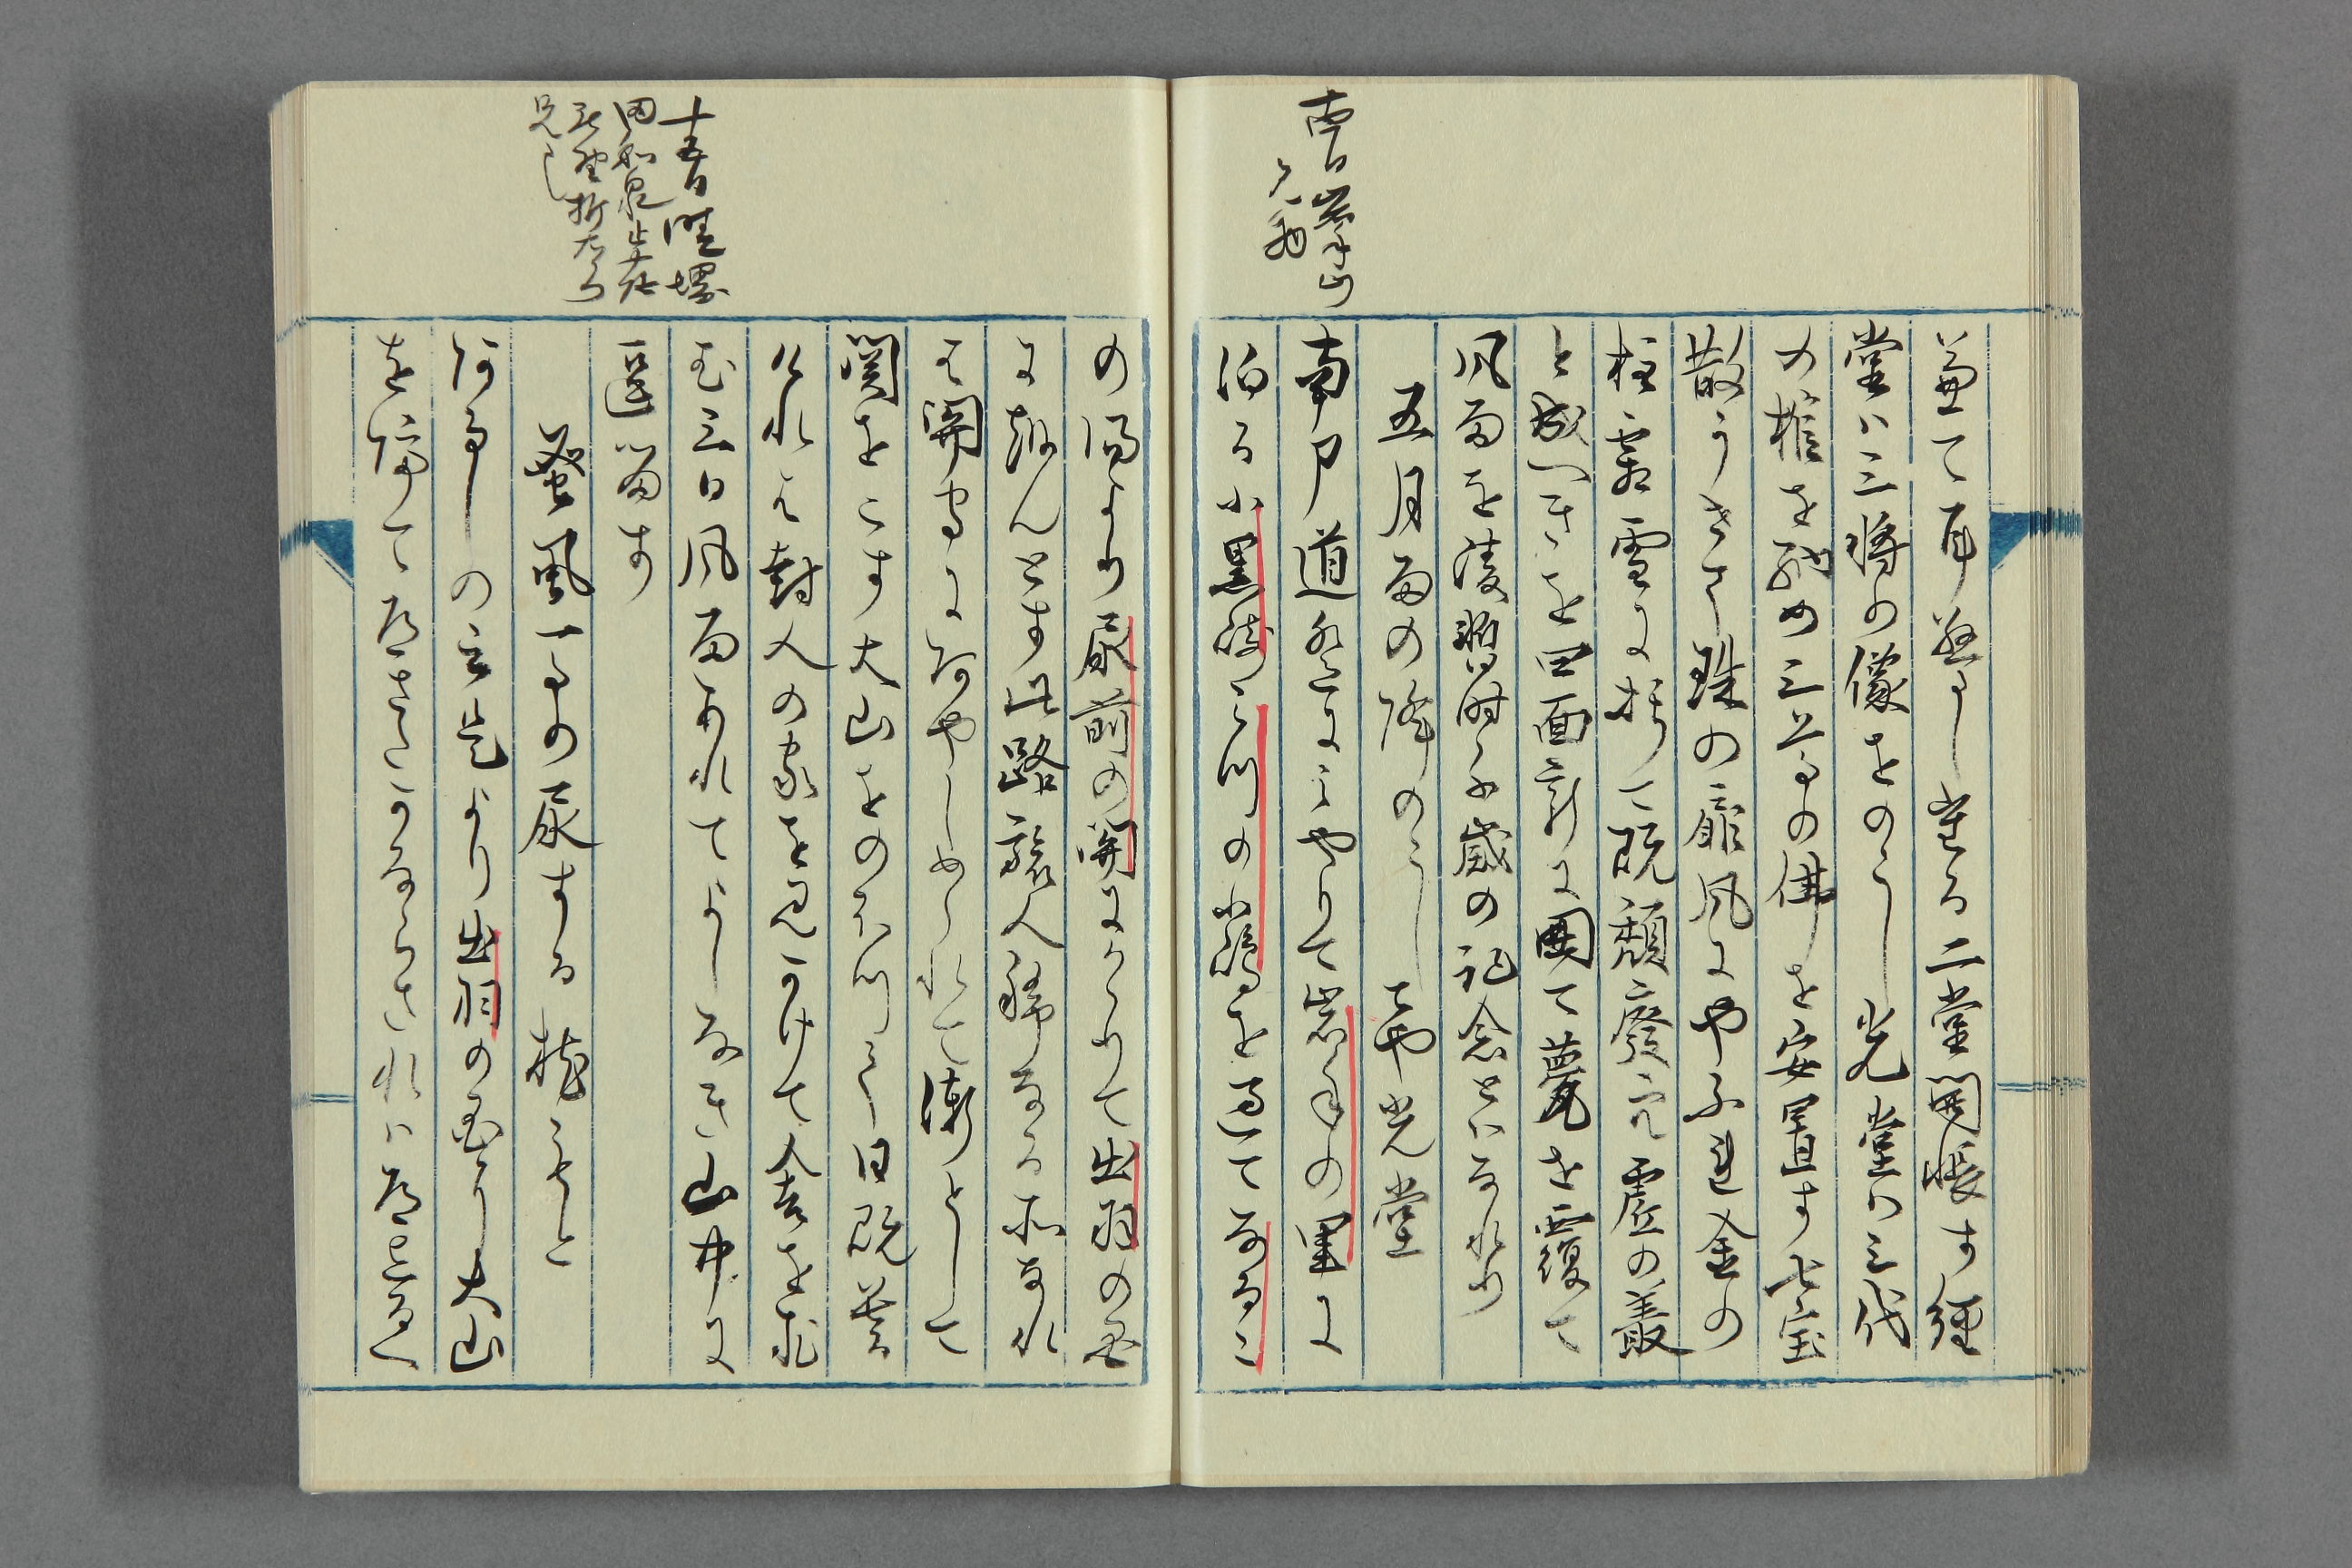 兼て耳驚し来る二堂開帳す経
堂ハ三将の像をのこし光堂ハ三代
の棺を納め三尊の佛を安置す七宝
散うせて珠の扉風にやふれ金の
柱霜雪に朽て既頽廃空虚の叢
と成へきを四面新に囲て甍を覆て
風雨を凌暫時千歳の記念とハなれり
五月雨の降のこしてや光堂
南戸道遥にみやりて岩手の里に
泊る小黒崎みつの小嶋を過てなるこ
の湯より尿前の関にかゝりて出羽の国
に越んとす此路旅人稀なる所なれ
は関守にあやしめられて漸として
関をこす大山をのほつて日既暮
けれは封人の家を見かけて舎を求
む三日風雨あれてよしなき山中に
逗留す
蚤虱馬の尿する枕もと
あるしの云是より出羽の国に大山
を隔て道さたかならされハ道しるへ
十四日岩手山
十五日 堺